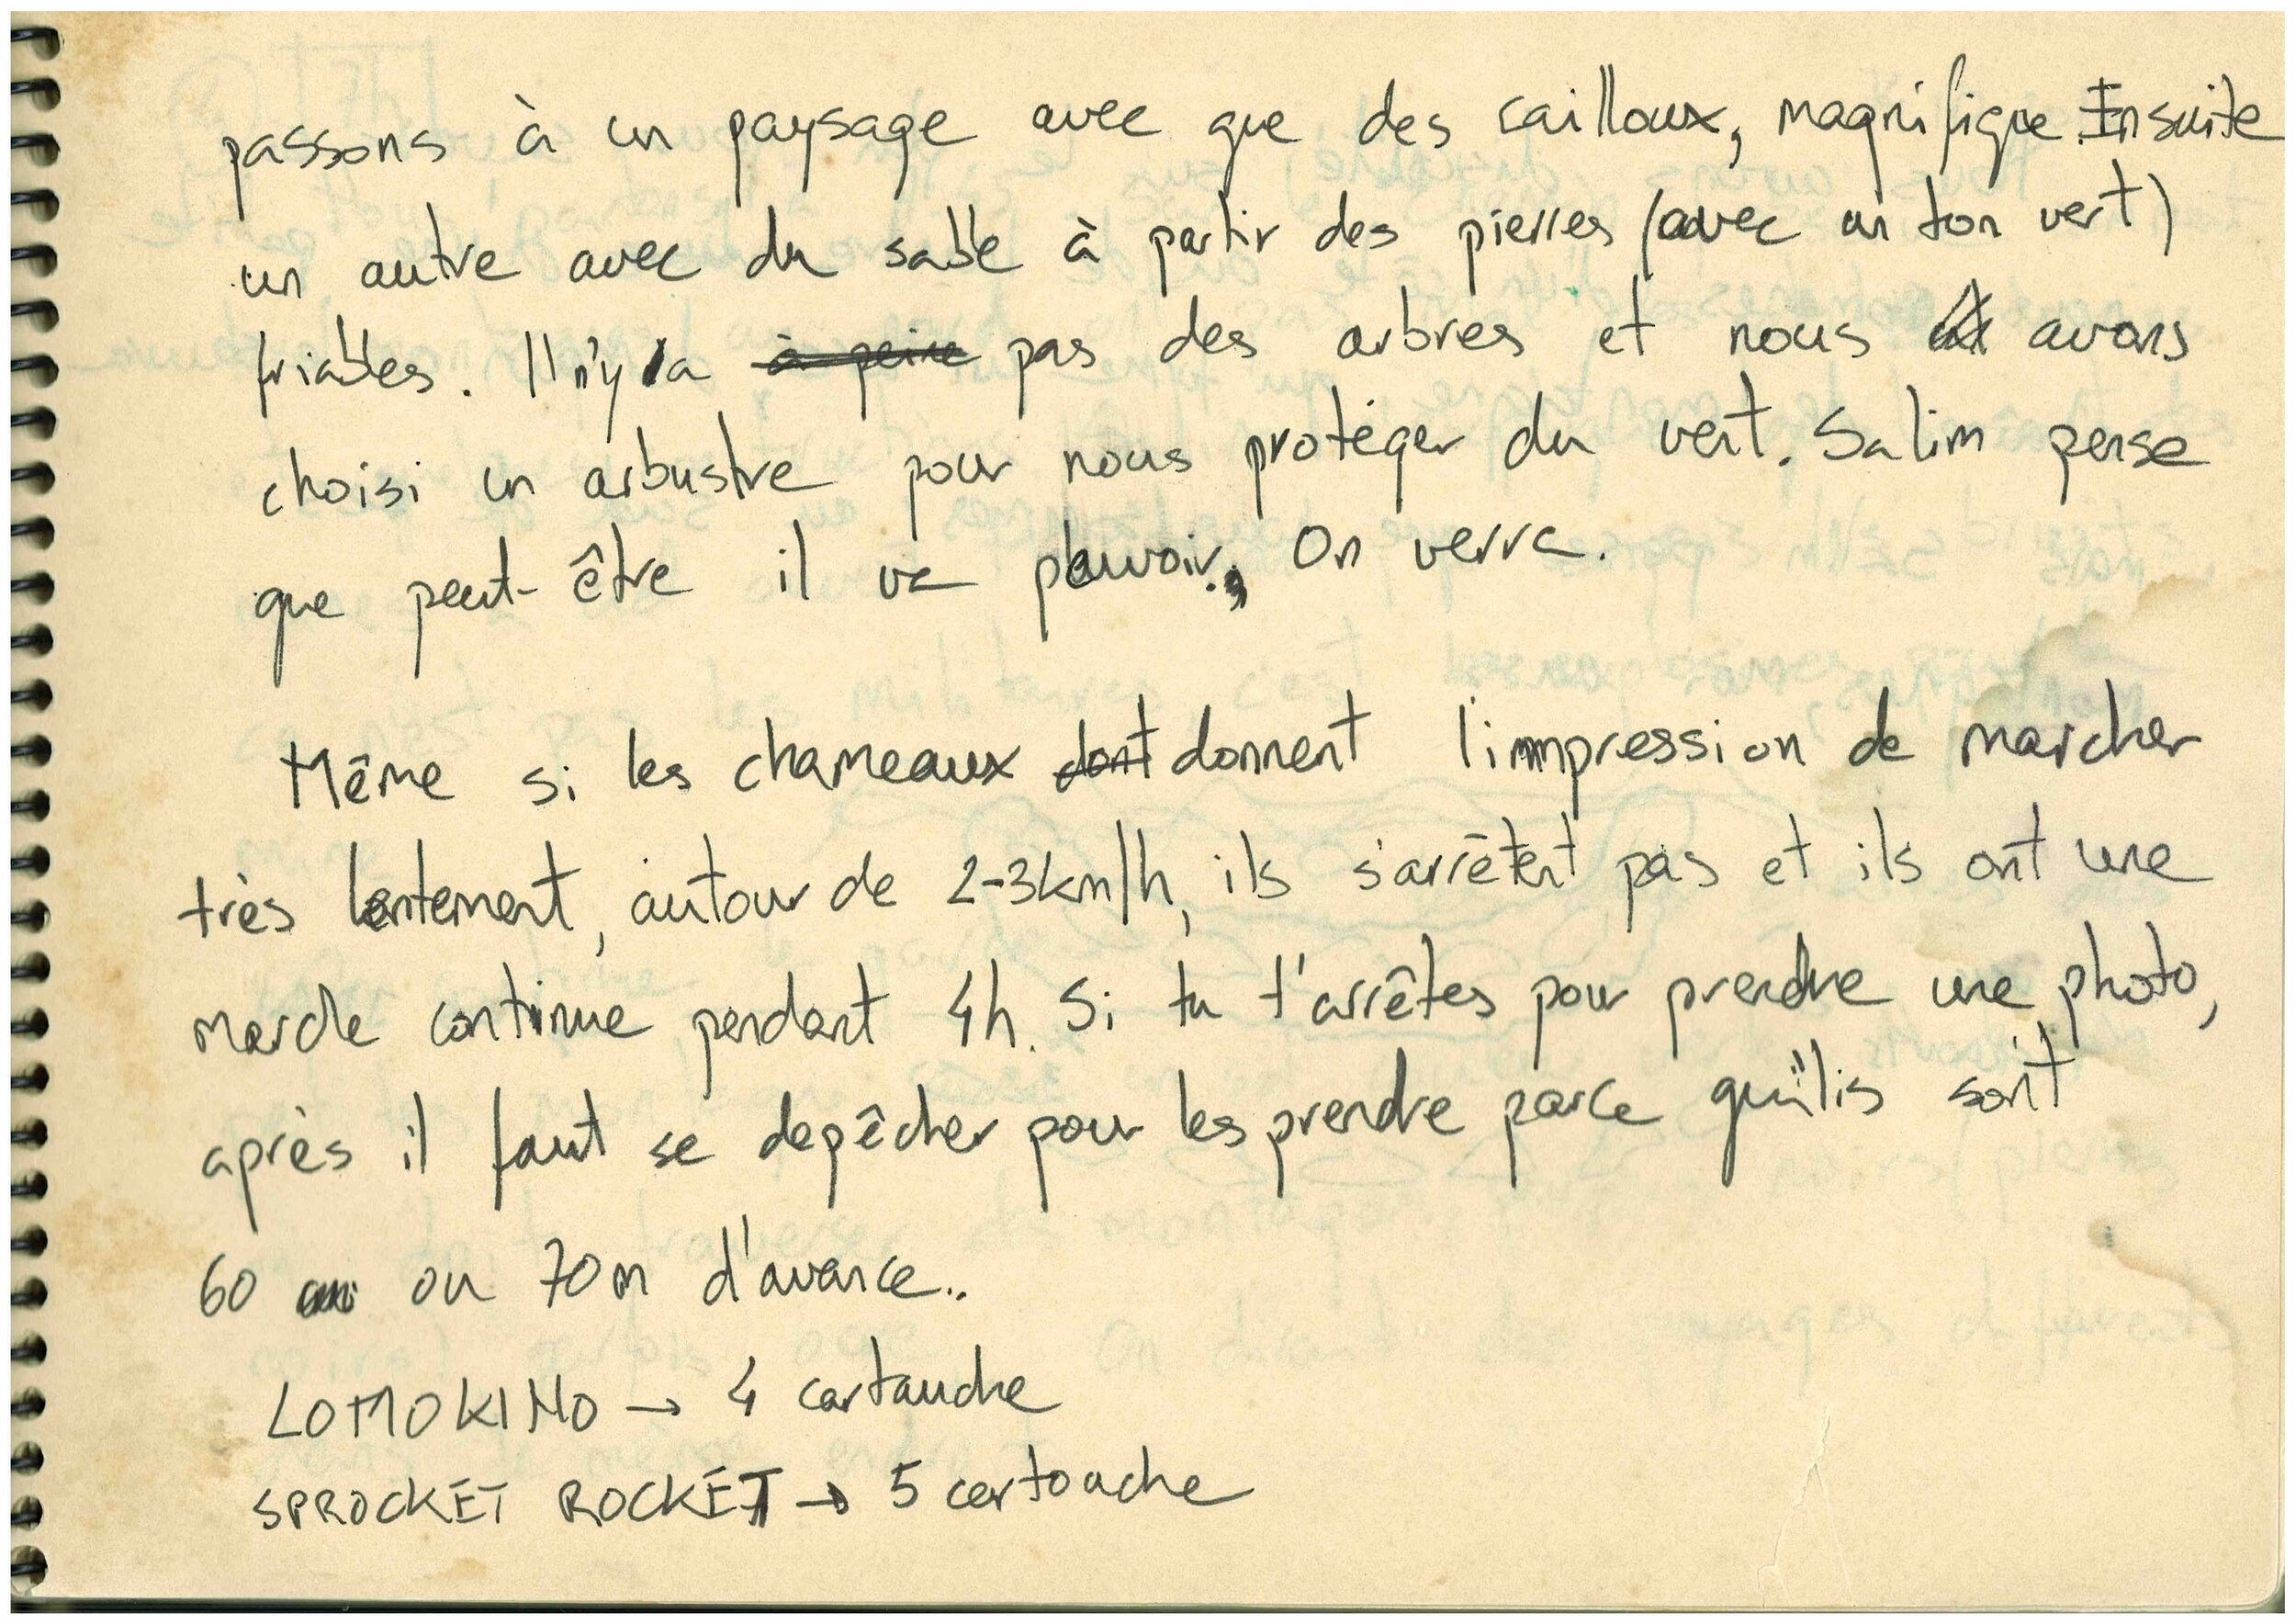 passons à un paysage avec que des cailloux, magnifique. Insuite
un autre avec du sable à partir des pierres (avec un ton vert)
friables. Il n'y a à peine pas des arbres et nous avons
choisi un arbustre pour nous protéger du vent. Salim pense
que peut-être il va pouvoir, On verra.
Même si les chameaux dont donnent l'immpression de marcher
très lentement, autour de 2-3km/h, ils s'arrêtent pas et ils ont une
marche continue pendant 4h. Si tu t'arrêtes pour prendre une photo,
après il faut se depêcher pour les prendre parce qu'ils sont
60 ou 70m d'avance..
LOMOKINO → 4 cartauche
SPROCKET ROCKET → 5 cartouche